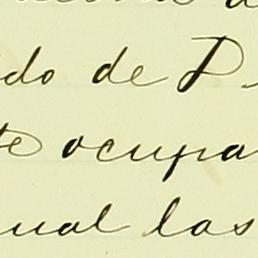 do de D
te ocupa
ual las